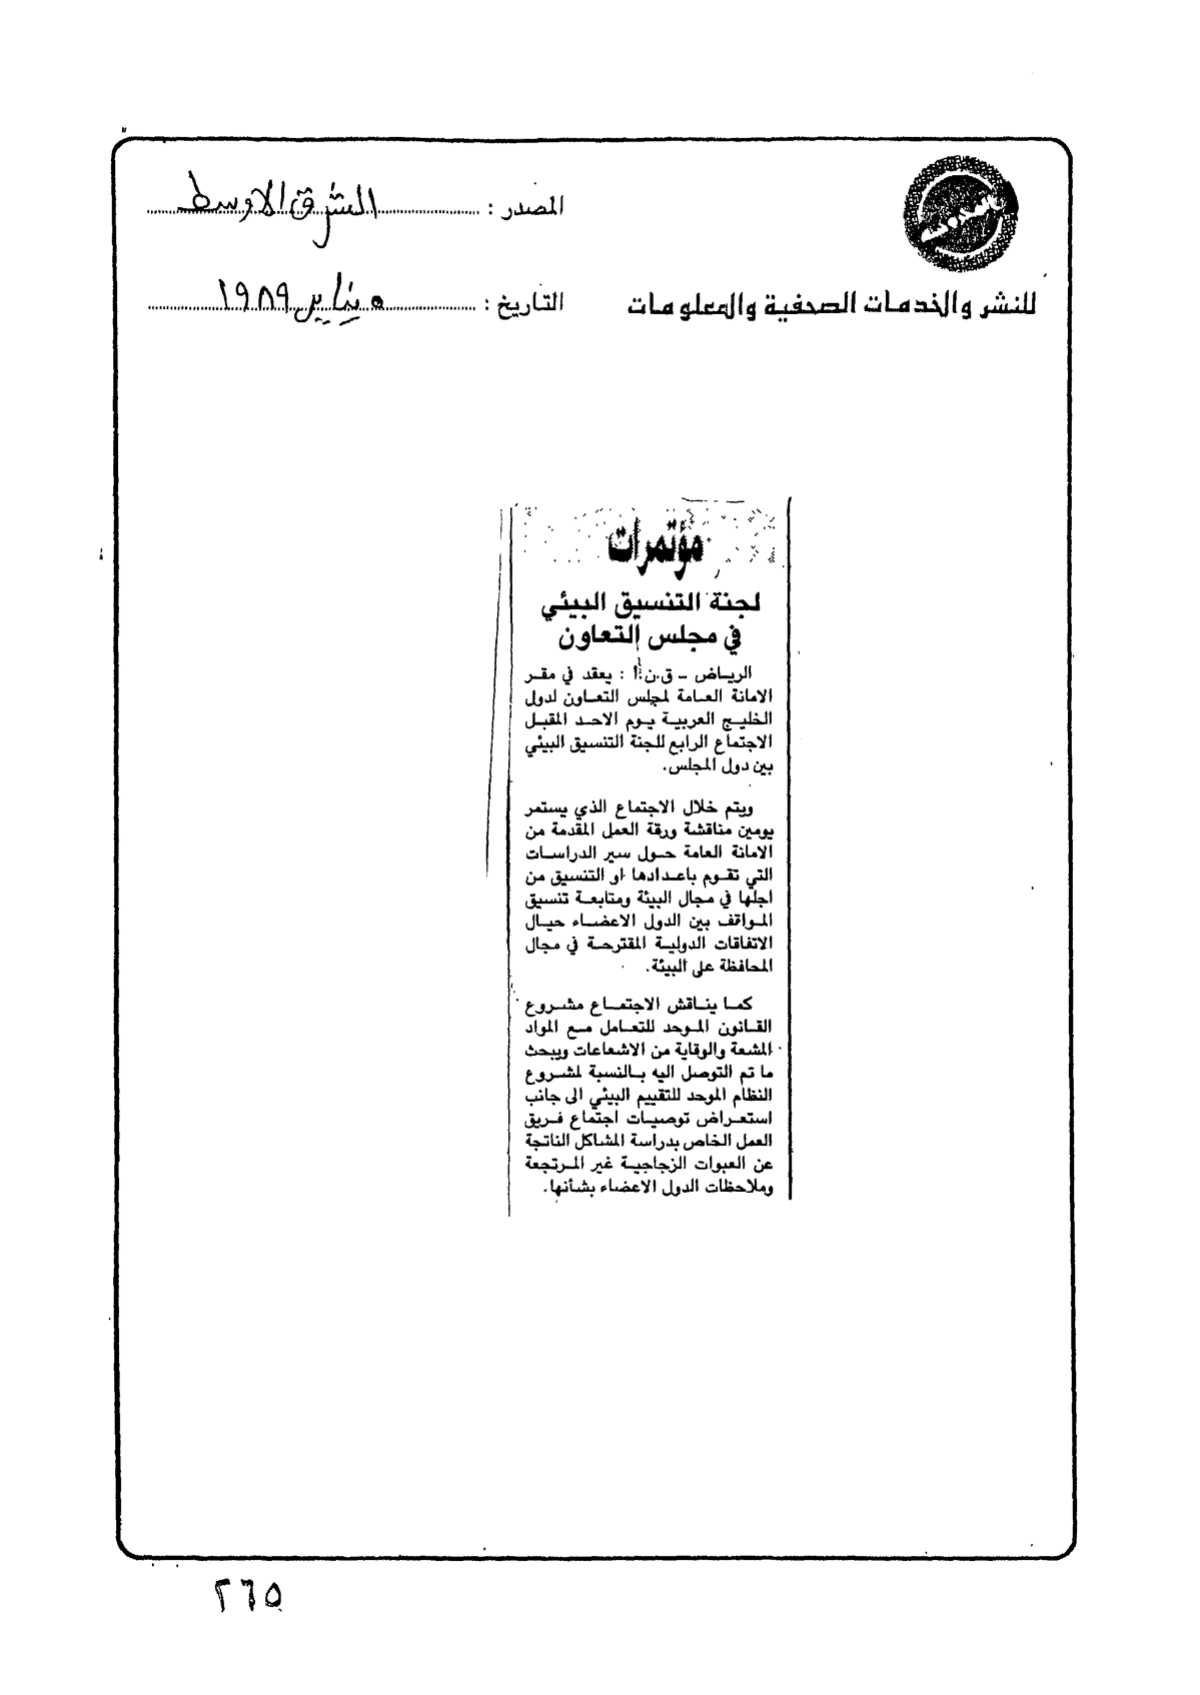 المصدر : الشرق الاوسط
للنشر والخدمات الصحفية والمعلومات
التاريخ : ٥ يناير ١٩٨٩
مؤتمرات
لجنة التنسيق البيئي
في مجلس التعاون
الرياض - ق.ن.أ : يعقد في مقر
الامانة العامة لمجلس التعاون لدول
الخليج العربية يوم الاحد المقبل
الاجتماع الرابع للجنة التنسيق البيئي
بين دول المجلس.
ويتم خلال الاجتماع الذي يستمر
يومين مناقشة ورقة العمل المقدمة من
الامانة العامة حول سير الدراسات
التي تقوم باعدادها او التنسيق من
اجلها في مجال البيئة ومتابعة تنسيق
المواقف بين الدول الاعضاء حيال
الاتفاقات الدولية المقترحة في مجال
المحافظة على البيئة.
كما يناقش الاجتماع مشروع
القانون الموحد للتعامل مع المواد
المشعة والوقاية من الاشعاعات ويبحث
ما تم التوصل اليه بالنسبة لمشروع
النظام الموحد للتقييم البيئي الى جانب
استعراض توصيات اجتماع فريق
العمل الخاص بدراسة المشاكل الناتجة
عن العبوات الزجاجية غير المرتجعة
وملاحظات الدول الاعضاء بشأنها.
٢٦٥